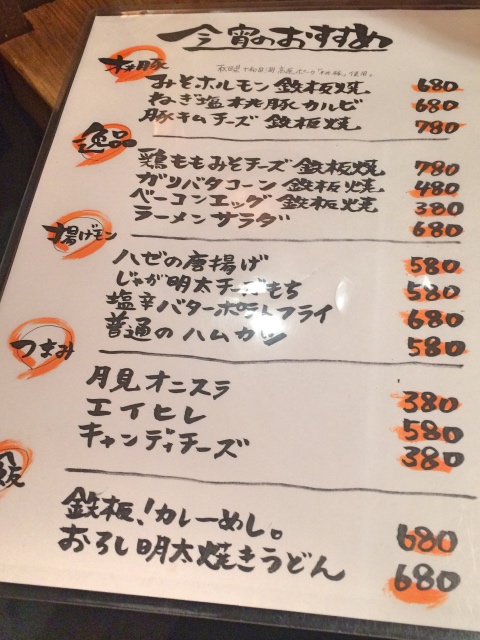 今宵のおすすめ
桃豚
秋田県十和田湖高原ポーク「桃豚」使用。
みそホルモン 鉄板焼 680
ねぎ塩桃豚カルビ 680
豚キムチーズ 鉄板焼 780
逸品
鶏ももみそチーズ 鉄板焼 780
ガリバタコーン 鉄板焼 480
ベーコンエッグ 鉄板焼 380
ラーメンサラダ 680
揚げモン
ハゼの唐揚げ 580
じゃが明太チーズもち 580
塩辛バターポテトフライ 680
普通のハムカツ 580
つまみ
月見オニスラ 380
エイヒレ 580
キャンディチーズ 380
鉄板!カレーめし。 680
おろし明太焼きうどん 680